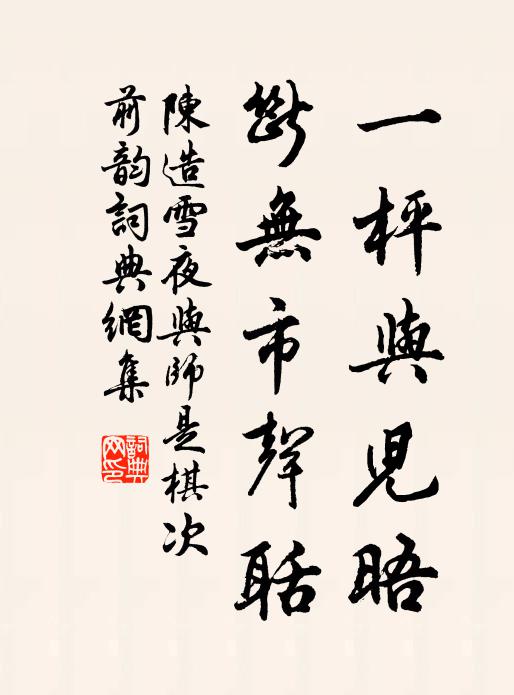 一枰與兒晤
斷無市聲聒
陳造雪夜與師是棋次
前韵詞典網集
詞典網印